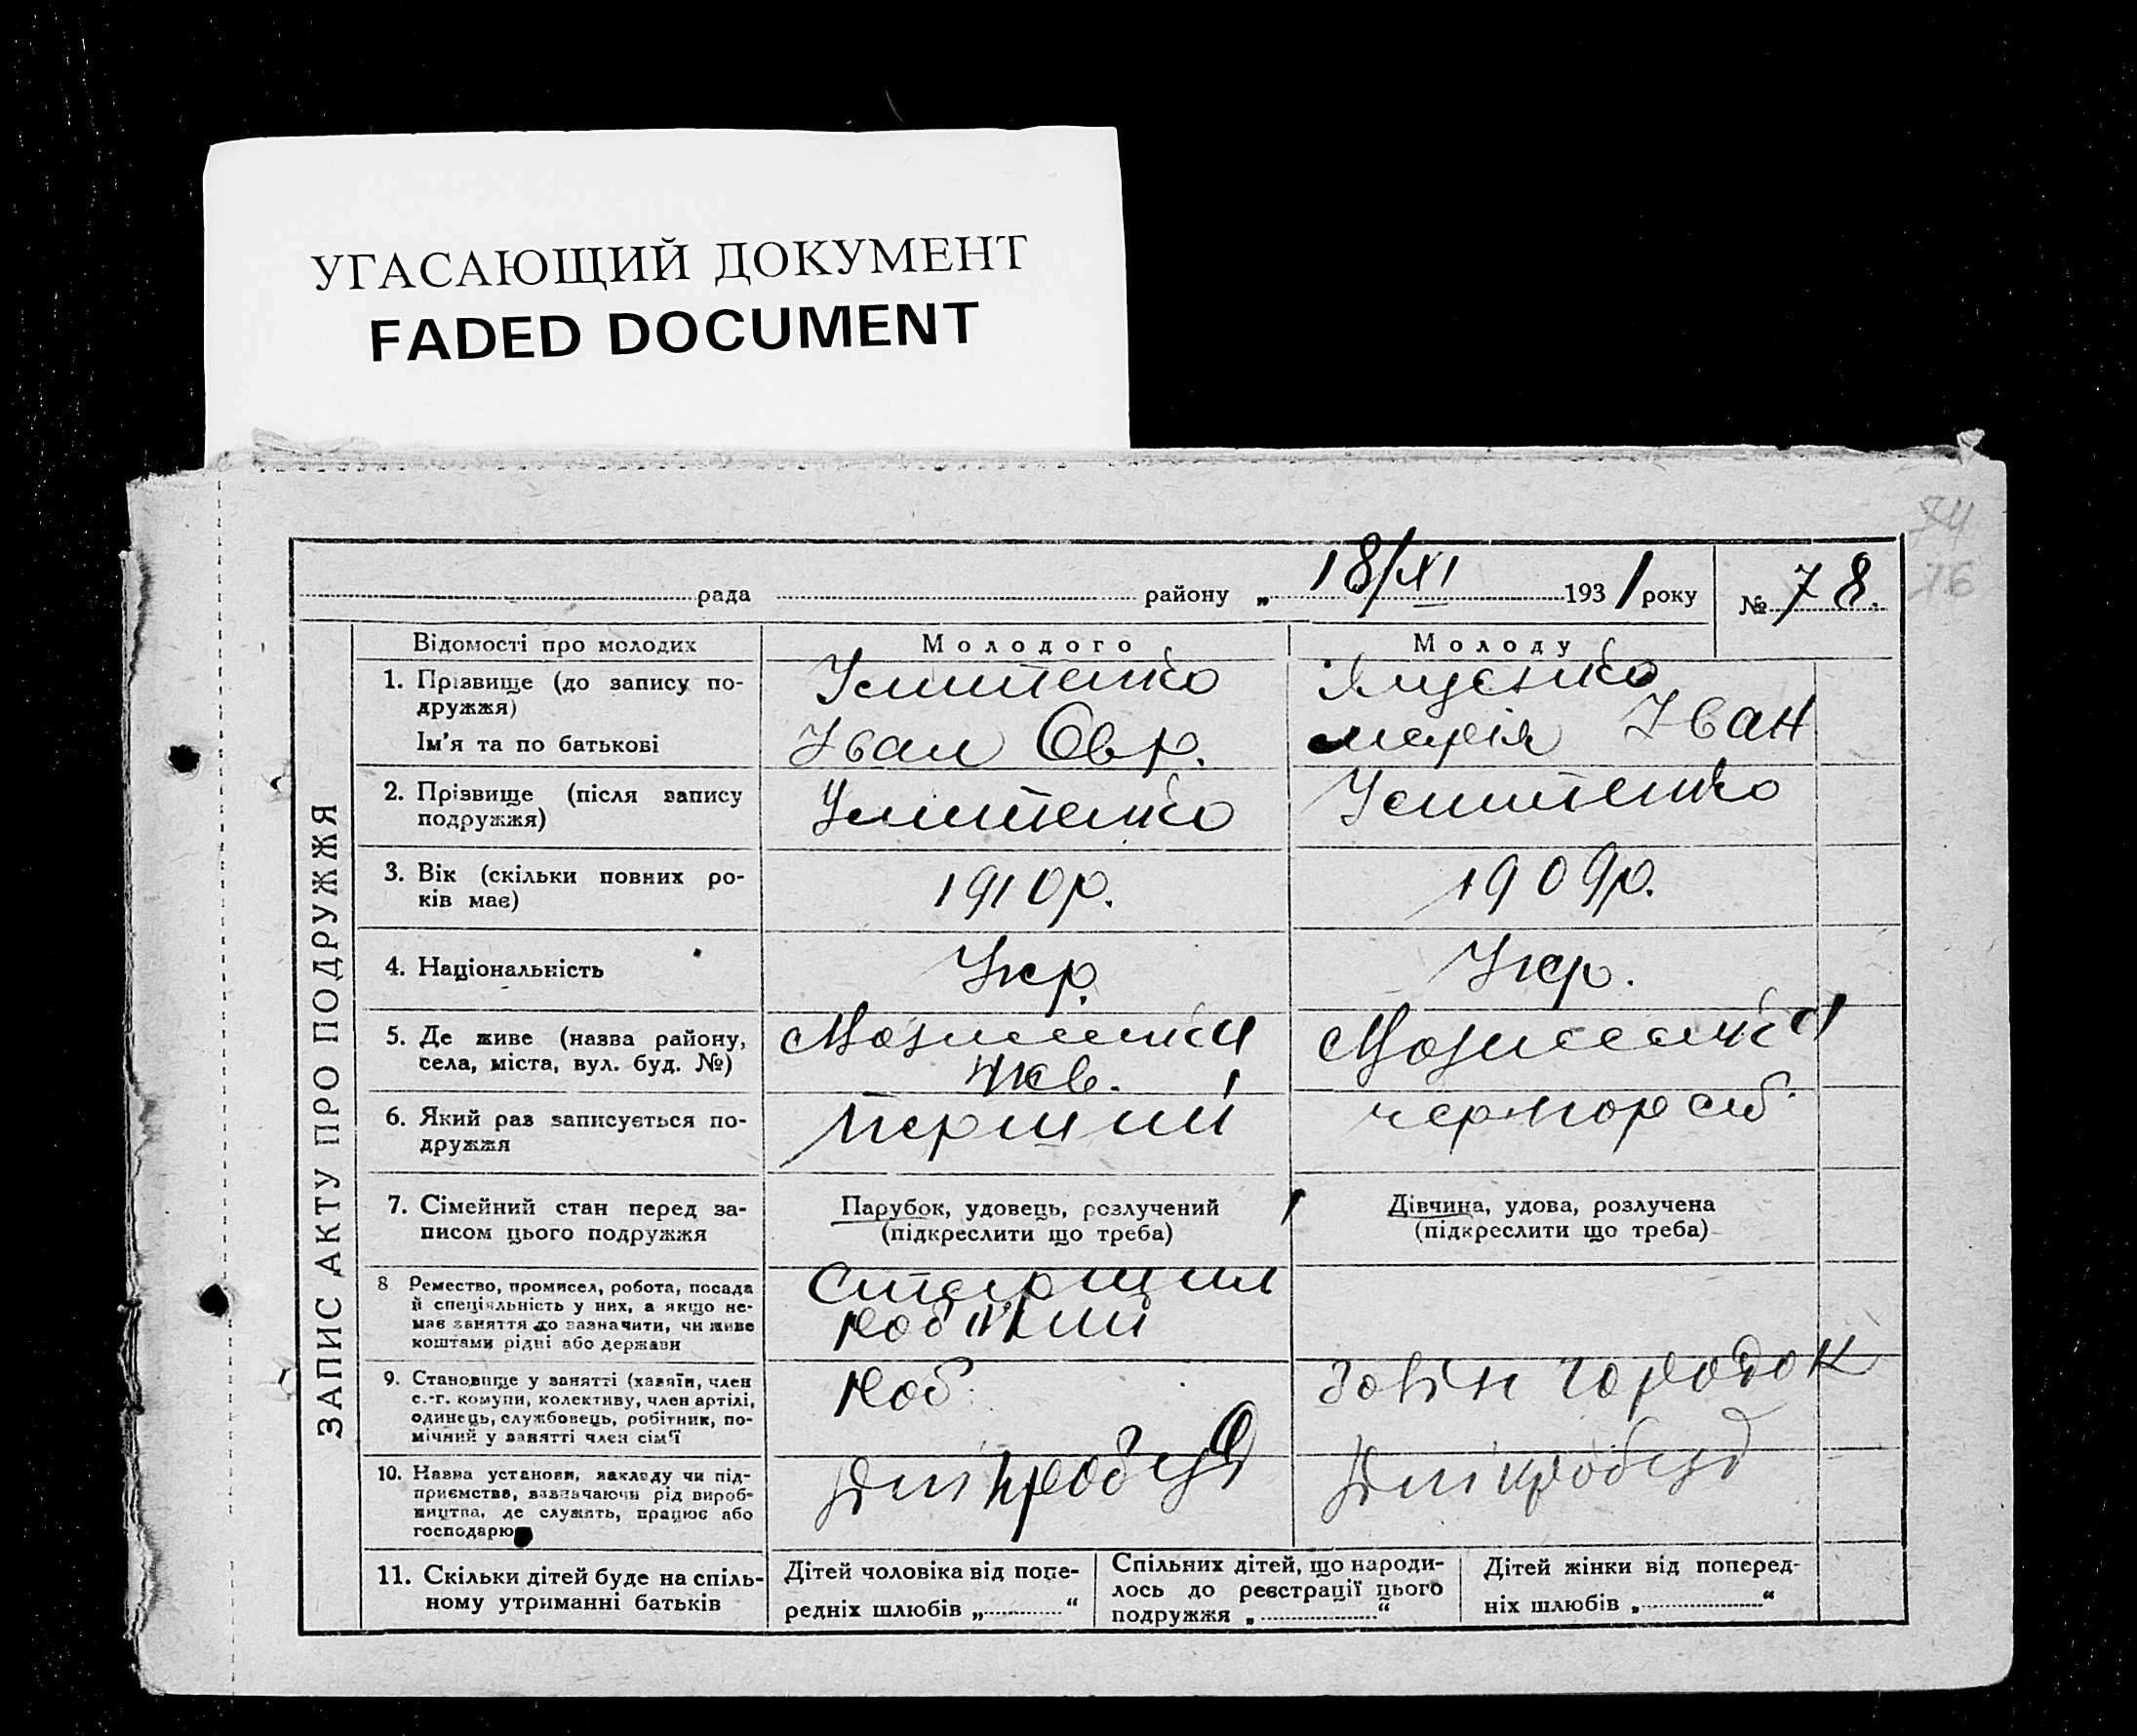 УГАСАЮЩИЙ ДОКУМЕНТ
FADED DOCUMENT
74
76
рада району „ 18/XI 1931 року № 78.
ЗАПИС АКТУ ПРО ПОДРУЖЖЯ
Відомості про молодих Молодого Молоду
1. Прізвище (до запису по-
дружжя)
Ім'я та по батькові
Іван Овр.
Марія Іван
2. Прізвище (після запису
подружжя)
3. Вік (скільки повних ро-
ків має)
1910р. 1909р.
4. Національність
Укр. Укр.
5. Де живе (назва району,
села, міста, вул. буд. №)
6. Який раз записується по-
дружжя
перший
7. Сімейний стан перед за-
писом цього подружжя
Парубок, удовець, розлучений
(підкреслити що треба)
Дівчина, удова, розлучена
(підкреслити що треба)
8 Ремество, промисел, робота, посада
й спеціяльність у них, а якщо не-
має заняття до зазначити, чи живе
коштами рідні або держави
9. Становище у занятті (хазяїн, член
с.-г. комуни, колективу, член артілі,
одинець, службовець, робітник, по-
мічний у занятті член сім'ї
Роб.
10. Назва установи, закладу чи під-
приємства, зазначаючи рід вироб-
ництва, де служить, працює або
господарює
Дніпробуд Дніпробуд
11. Скільки дітей буде на спіль-
ному утриманні батьків
Дітей чоловіка від попе-
редніх шлюбів „ “
Спільних дітей, що народи-
лось до реєстрації цього
подружжя „ “
Дітей жінки від поперед-
ніх шлюбів „ “